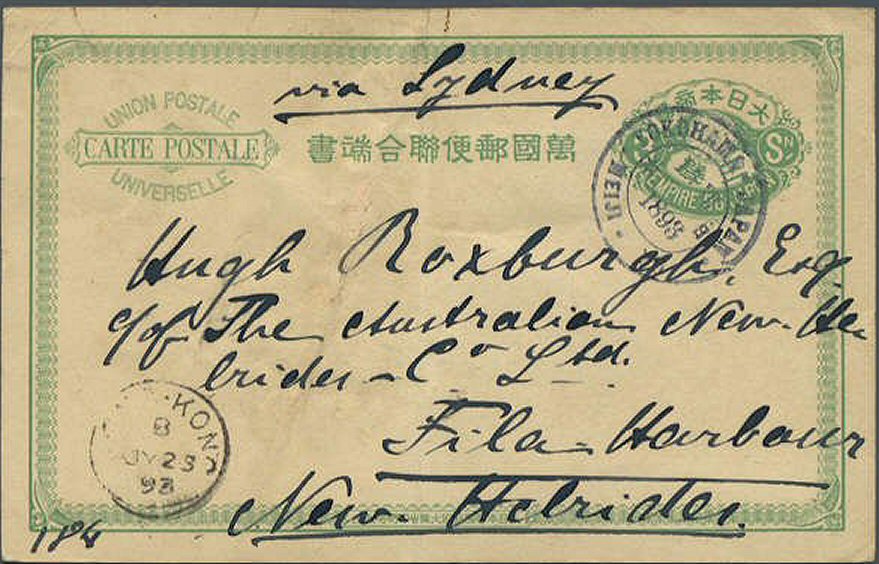 via Sydney
UNION POSTALE
CARTE POSTALE
UNIVERSELLE
書端合聯便郵國萬
大日本帝
Sn
EMPIRE DU JAPON
YOKOHAMA JAPAN
MEIJI
1893
Hugh Roxburgh, Esq.
c/of The Australian New-He-
brides-Co Ltd.
Fila-Harbour
New-Hebrides.
KONG
B
JY 23
93
184